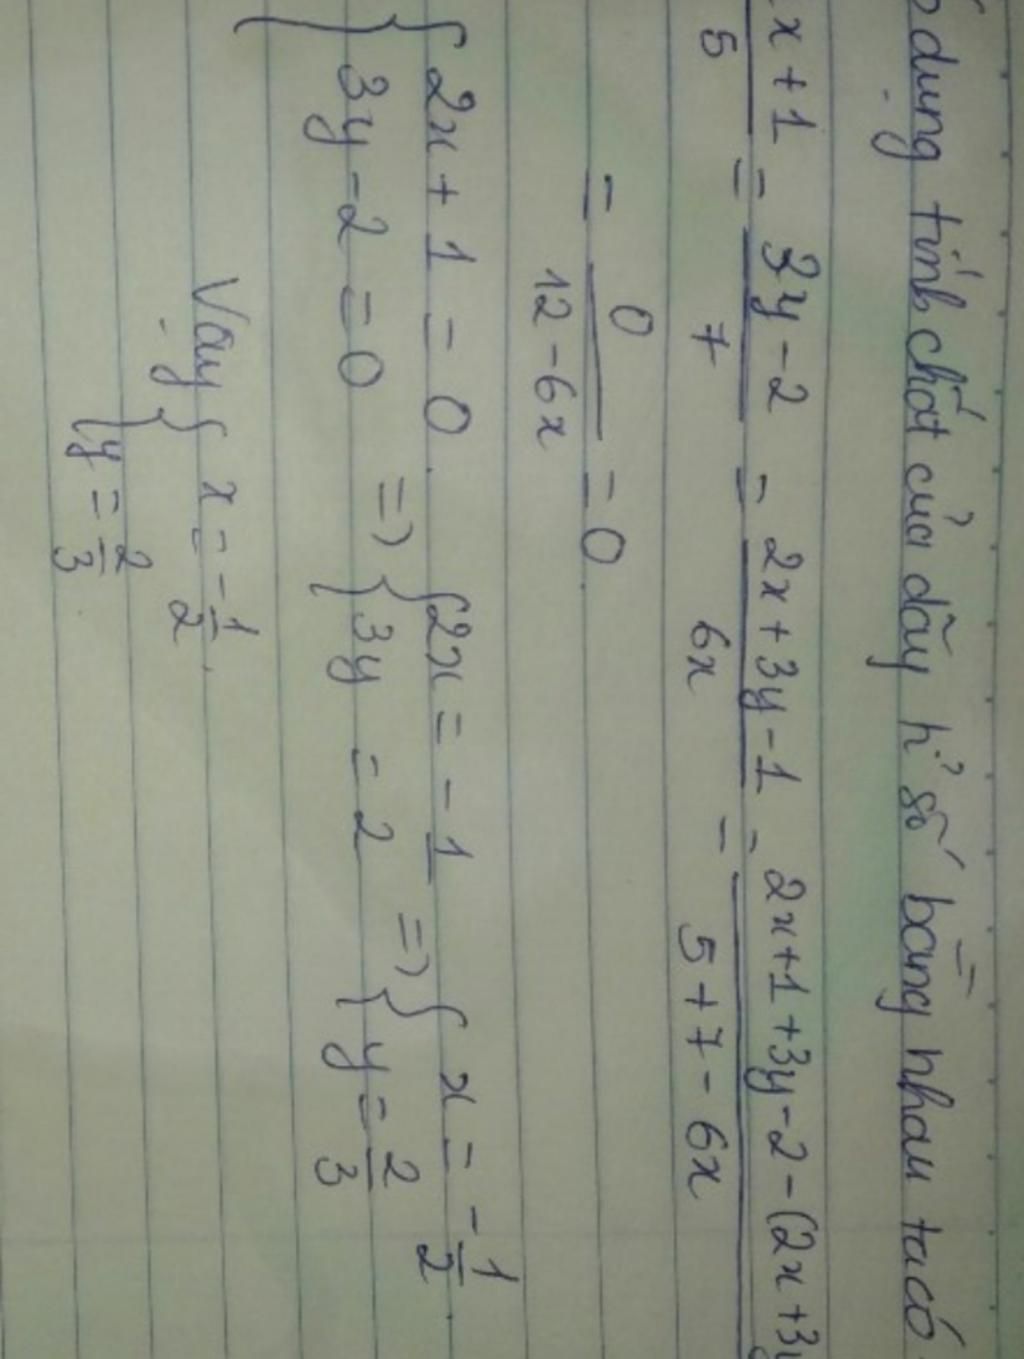 dụng tính chất của dãy tỉ số bằng nhau ta có
x + 1 / 5 = 3y - 2 / 7 = 2x + 3y - 1 / 6x = 2x + 1 + 3y - 2 - (2x + 3y / 5 + 7 - 6x
= 0 / 12 - 6x = 0.
{ 2x + 1 = 0. => { 2x = - 1 => { x = - 1/2.
{ 3y - 2 = 0 { 3y = 2 { y = 2/3
Vậy { x = - 1/2.
{ y = 2/3.